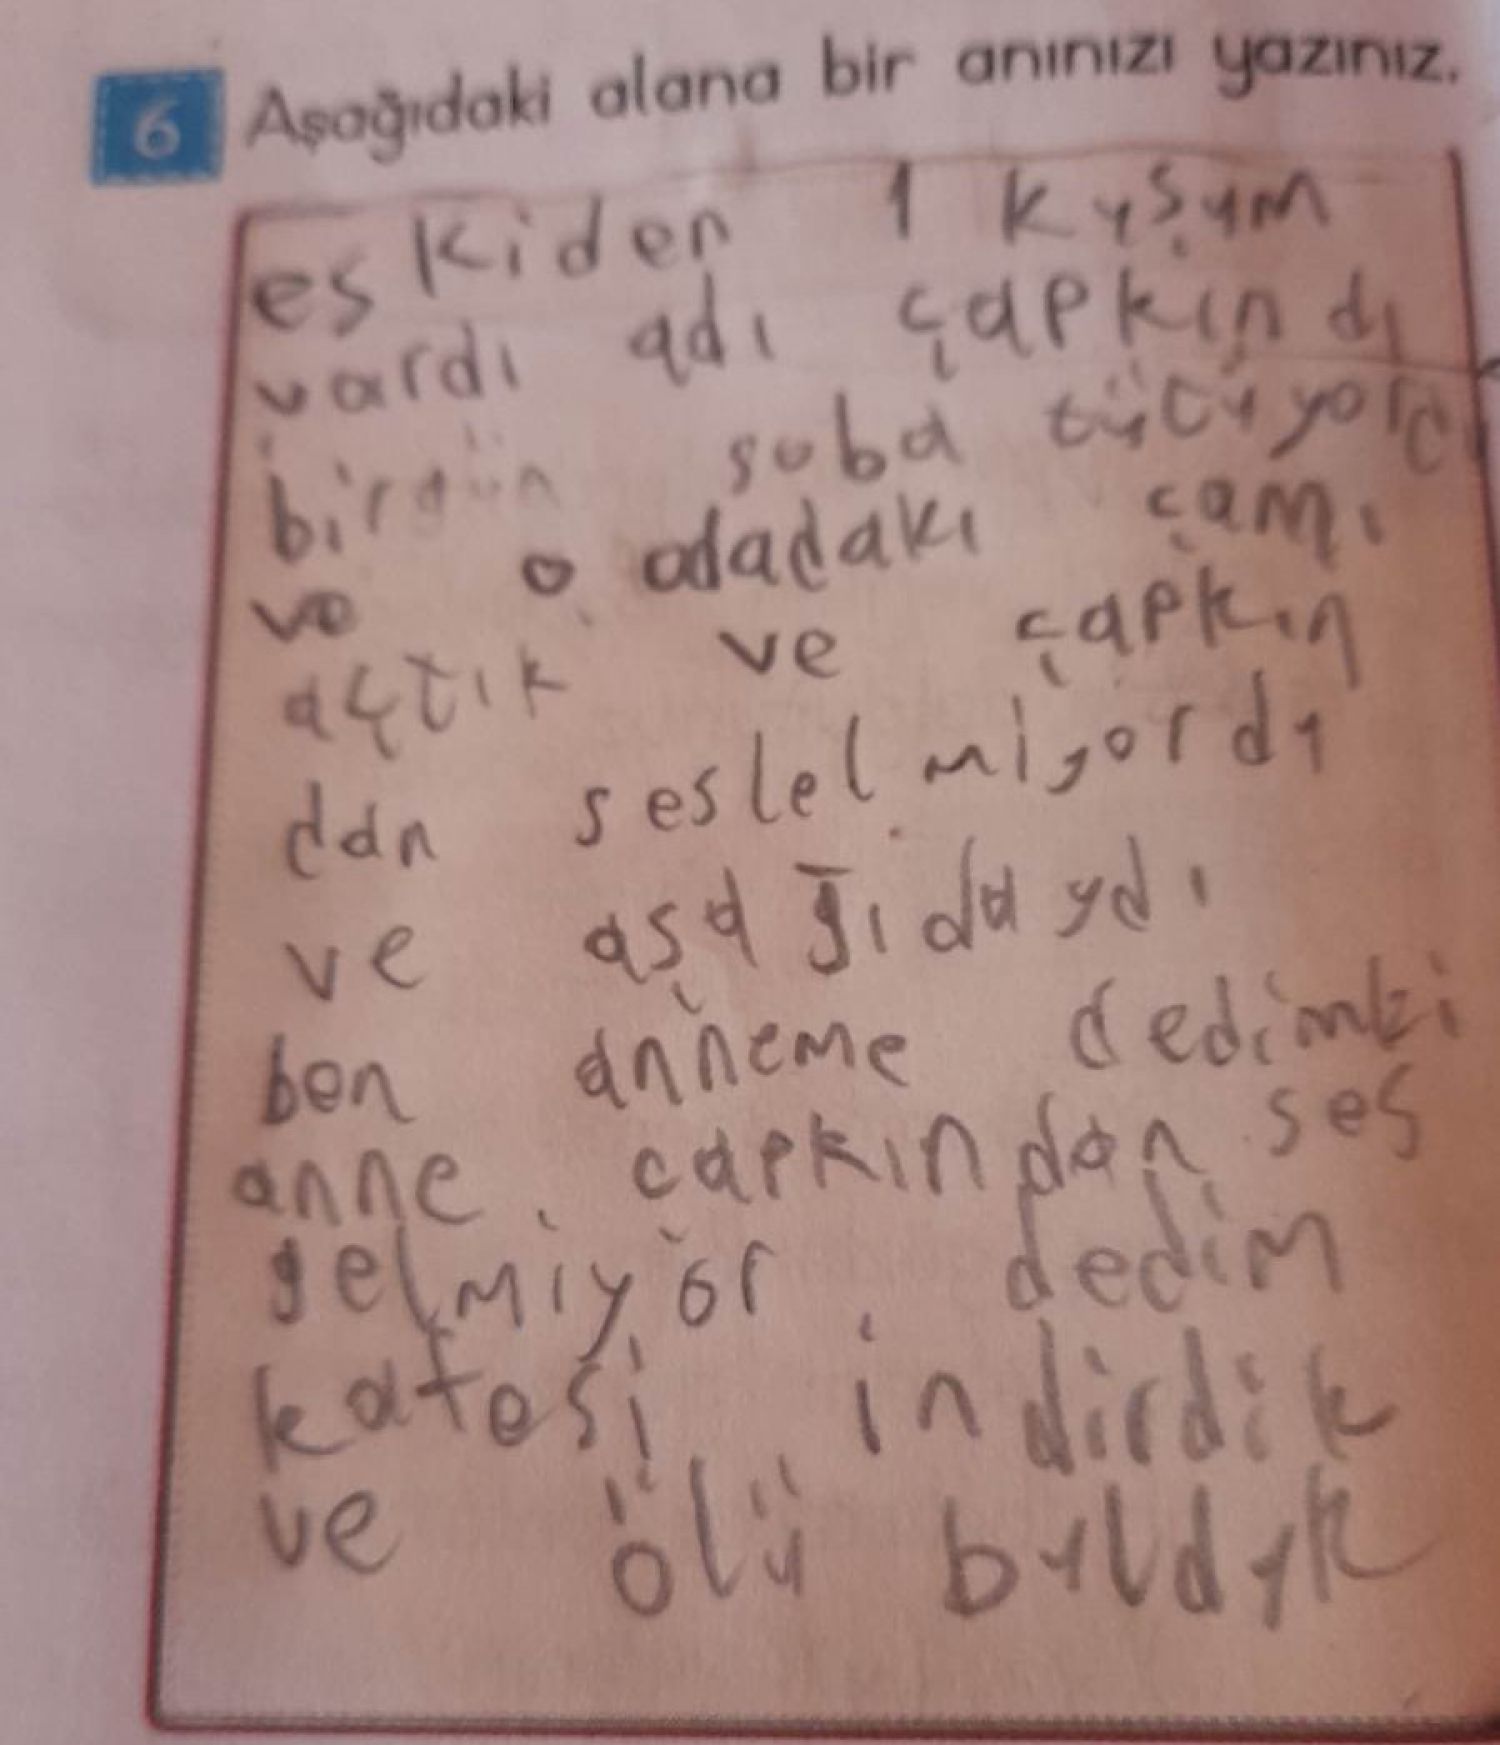 6 Aşağıdaki alana bir anınızı yazınız.
eskiden 1 kuşum
vardı adı çapkındı
birgün soba tütüyord
ve o odadakı camı
açtık ve çapkın
dan seslelmiyordu
ve aşağıdaydı
ben anneme dedimki
anne çapkından ses
gelmiyor dedim
kafesi indirdik
ve ölü bulduk